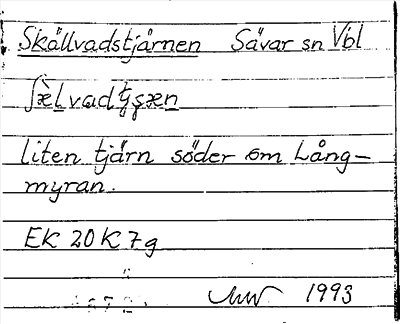 Skållvadstjärnen Sävar sn Vbl
liten tjärn söder om Lång-
myran.
EK 20K7g
1993